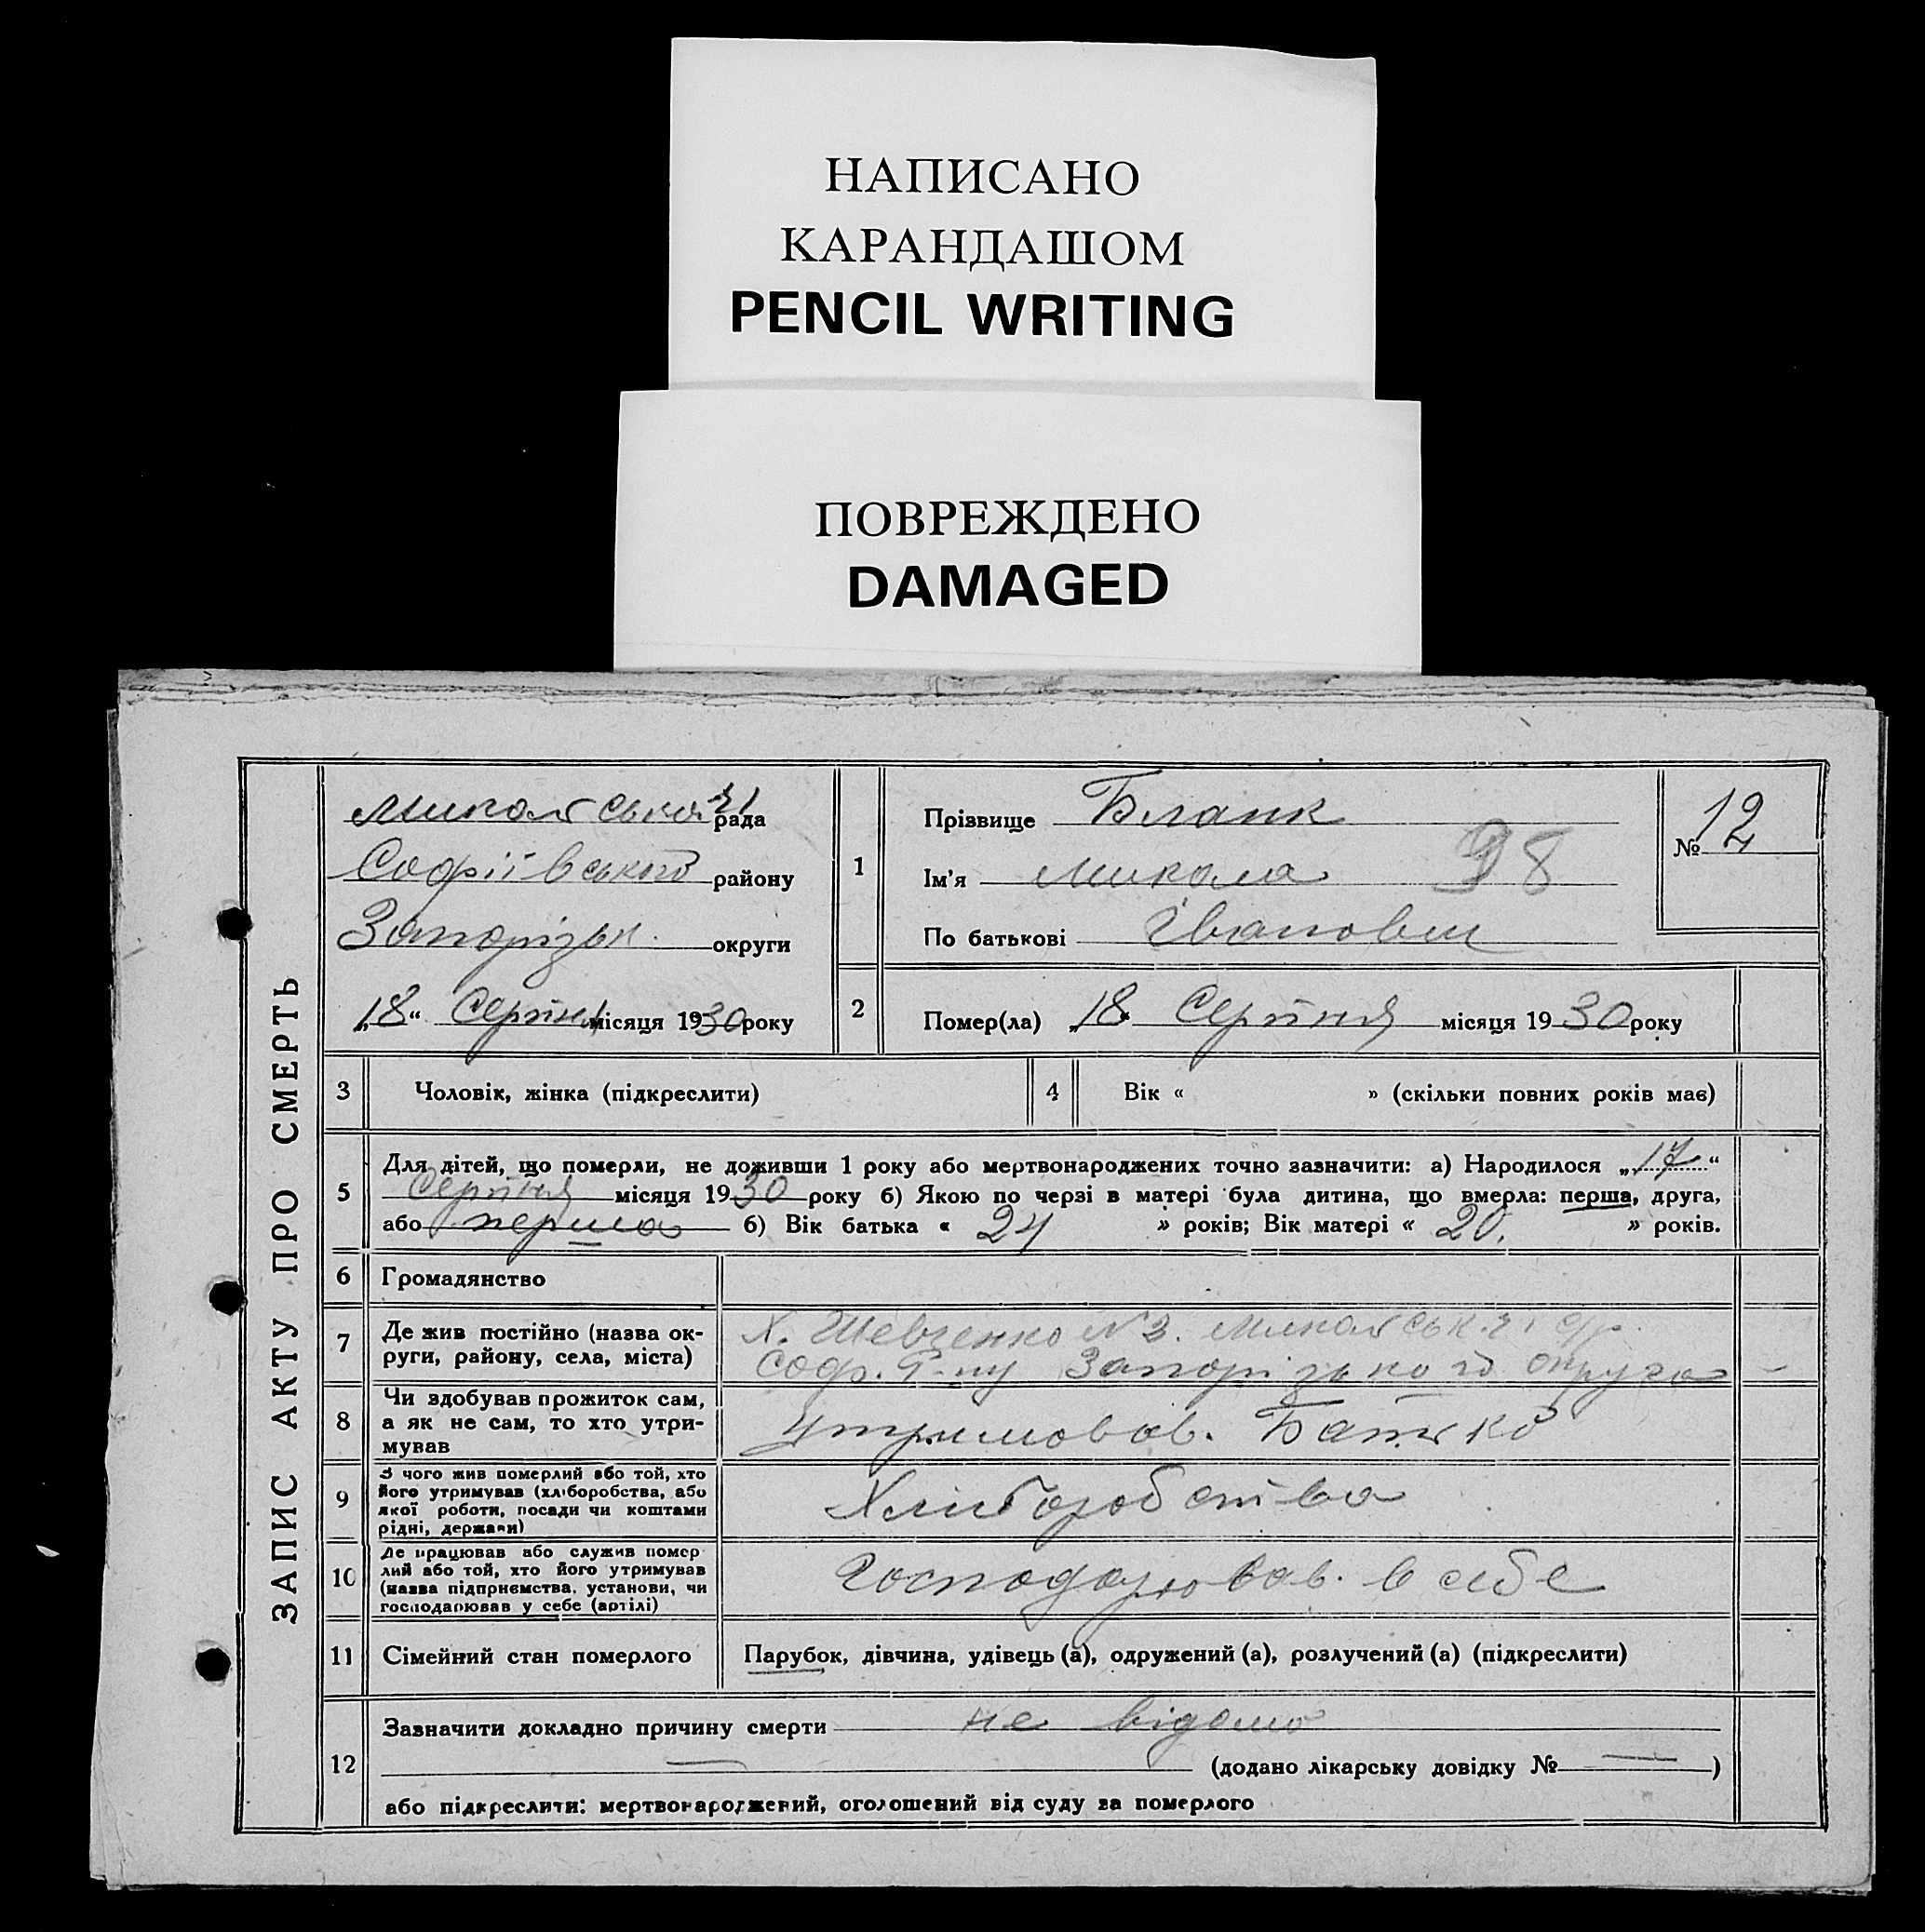 НАПИСАНО
КАРАНДАШОМ
PENCIL WRITING
ПОВРЕЖДЕНО
DAMAGED
ЗАПИС АКТУ ПРО СМЕРТЬ
рада
Софіївського району
Запорізьк. округи
„18“ Серпня місяця 1930 року
1
Прізвище Бланк
Ім'я Микола 98
По батькові Іванович
№ 12
2
Помер(ла) „18 Серпня місяця 1930 року
3 Чоловік, жінка (підкреслити)
4 Вік « » (скільки повних років має)
5
Для дітей, що померли, не доживши 1 року або мертвонароджених точно зазначити: а) Народилося „17“
Серпня місяця 1930 року б) Якою по черзі в матері була дитина, що вмерла: перша, друга,
або перша б) Вік батька « 24 » років; Вік матері « 20. » років.
6 Громадянство
7 Де жив постійно (назва ок-
руги, району, села, міста)
Х. Шевченко №3.
Соф. Р-ну Запорізького округа
8 Чи здобував прожиток сам,
а як не сам, то хто утри-
мував
утримовав. Батько
9 З чого жив померлий або той, хто
його утримував (хліборобства, або
якої роботи, посади чи коштами
рідні, держави)
Хліборобства
10 Де працював або служив помер
лий або той, хто його утримував
(назва підприємства, установи, чи
господарював у себе (артілі)
Господарював. в себе
11 Сімейний стан померлого
Парубок, дівчина, удівець (а), одружений (а), розлучений (а) (підкреслити)
12
Зазначити докладно причину смерти не відомо
— (додано лікарську довідку № — )
або підкреслити: мертвонароджений, оголошений від суду за померлого